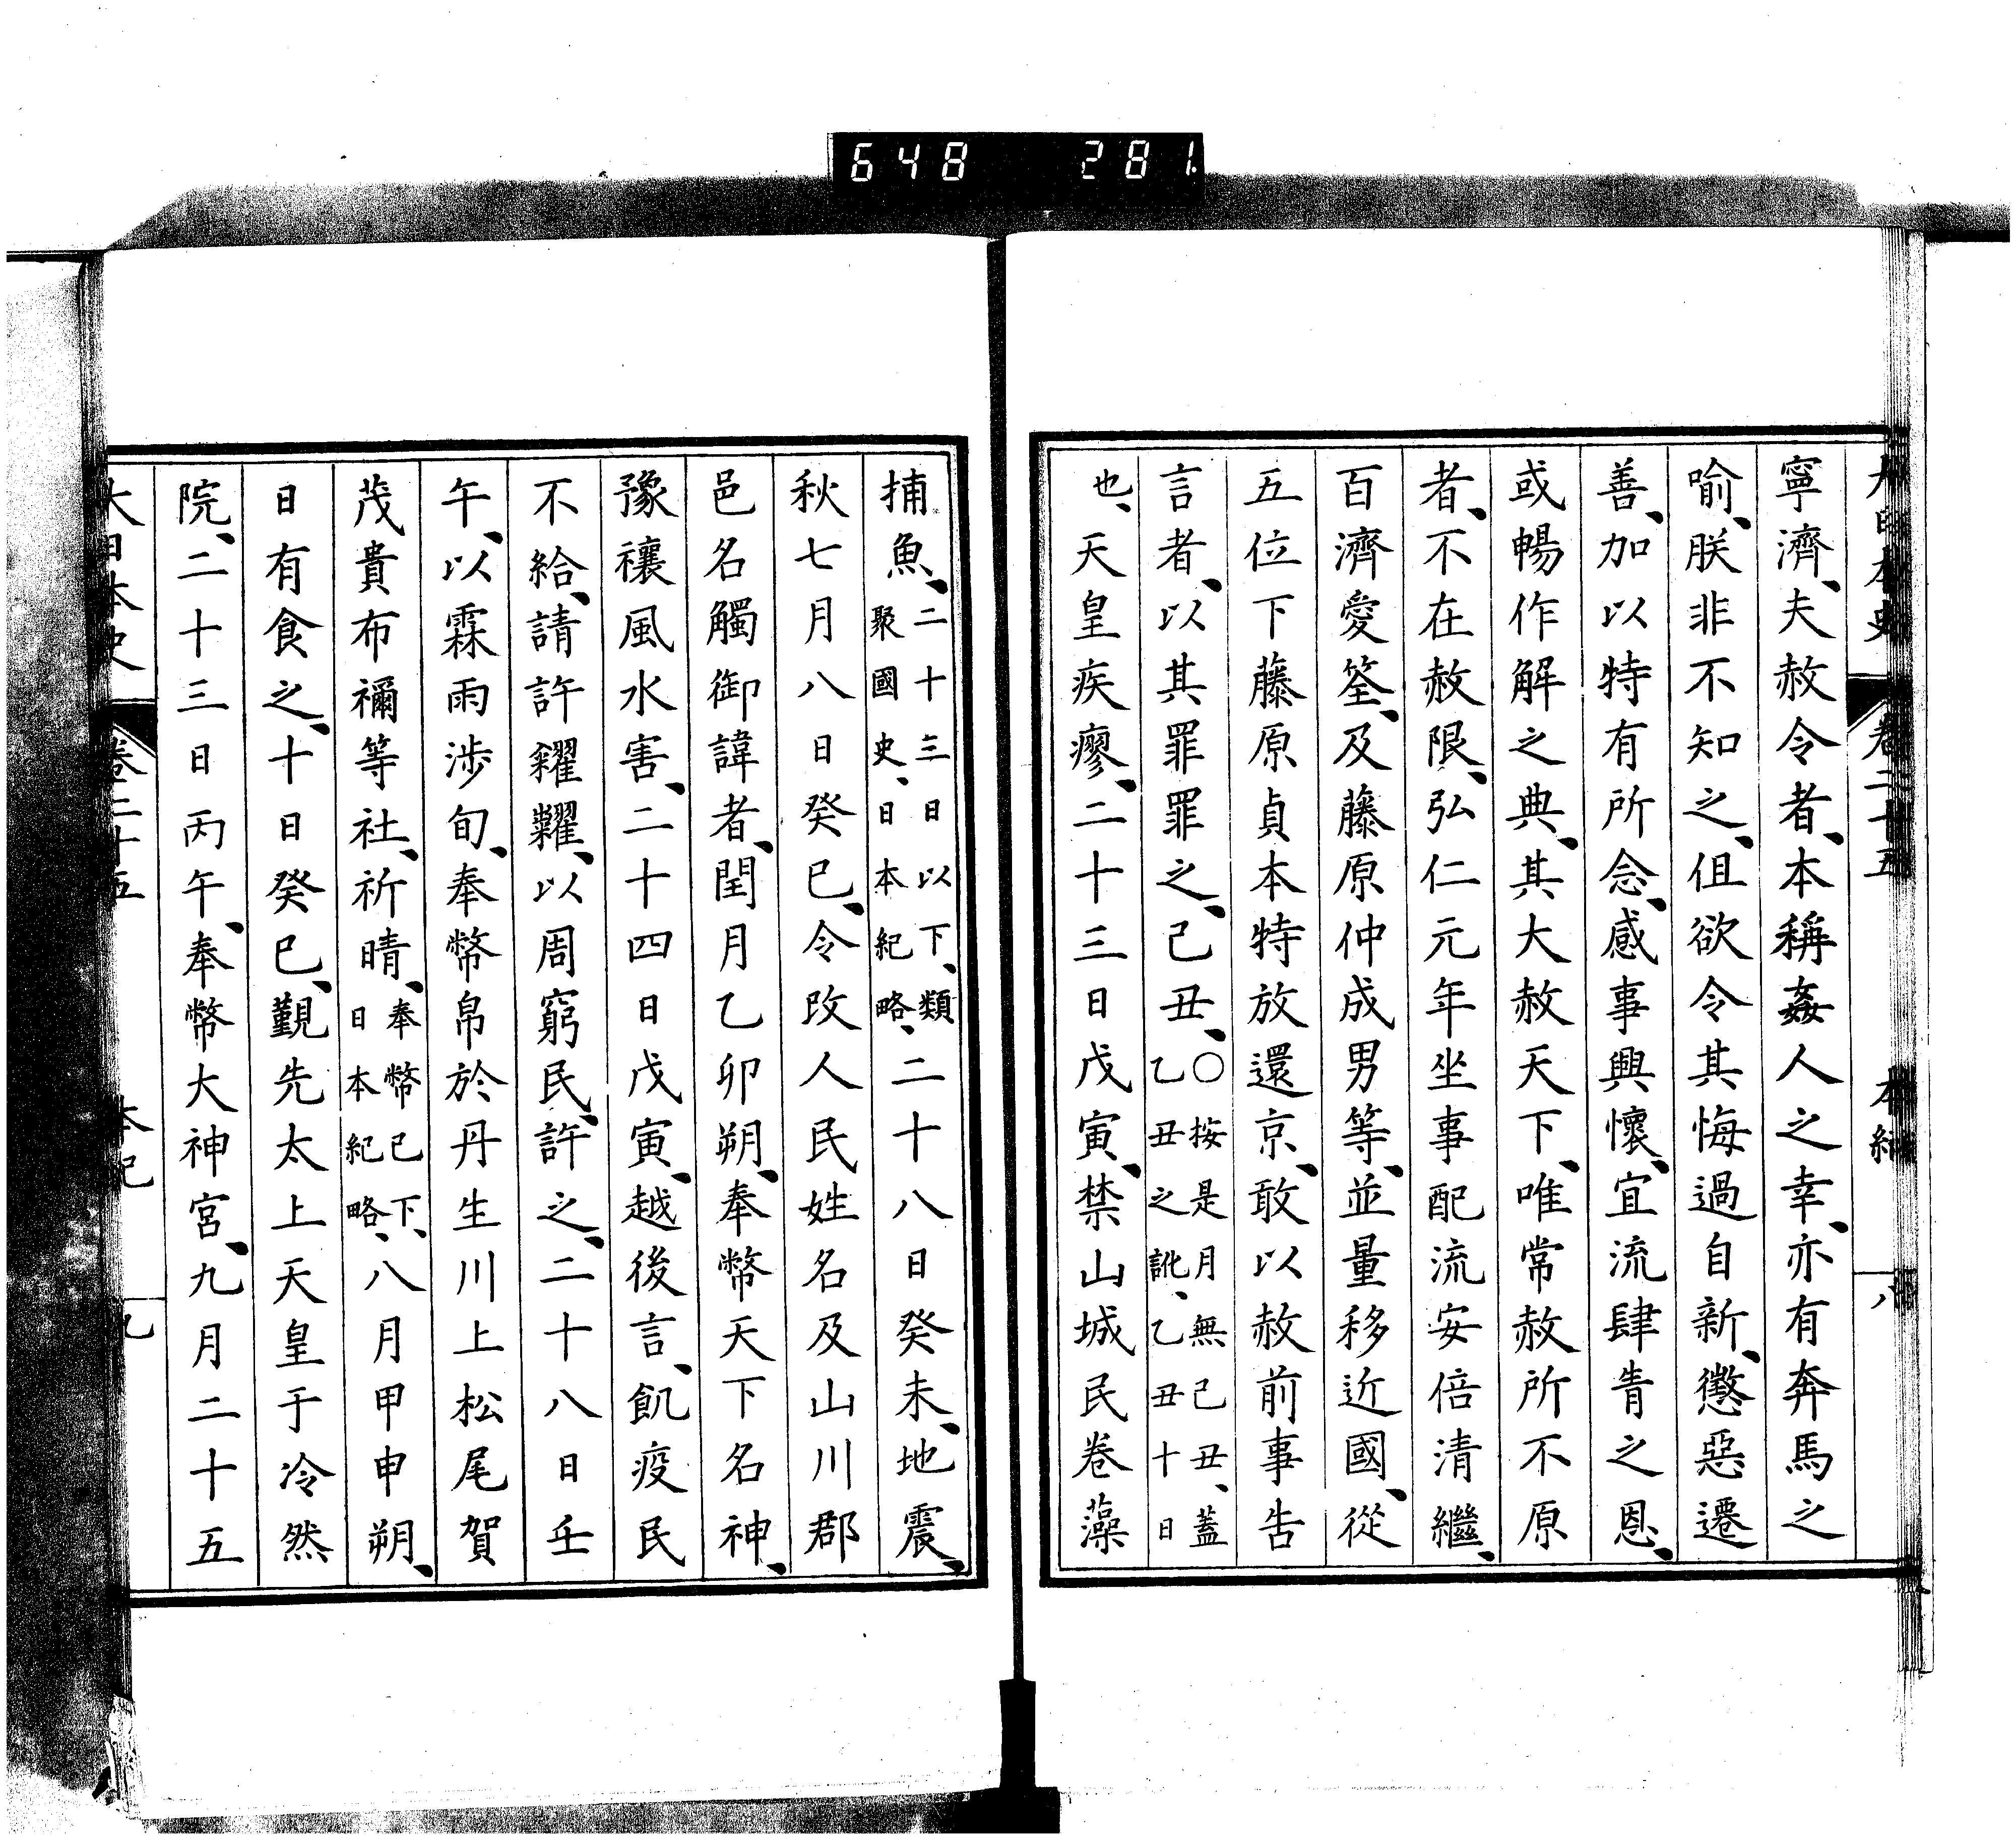 648 281
大日本史 卷二十五 本紀 八
寧濟、夫赦令者、本稱姦人之幸、亦有奔馬之
喻、朕非不知之、但欲令其悔過自新、懲惡遷
善、加以特有所念、感事興懷、宜流肆眚之恩、
或暢作解之典、其大赦天下、唯常赦所不原
者、不在赦限、弘仁元年坐事配流安倍清繼、
百濟愛筌、及藤原仲成男等、並量移近國、從
五位下藤原貞本特放還京、敢以赦前事告
言者、以其罪罪之、己丑、〇按是月無己丑、蓋
乙丑之訛、乙丑十日
也、天皇疾瘳、二十三日戊寅、禁山城民卷藻
捕魚、二十三日以下、類
聚國史、日本紀略、二十八日癸未、地震、
秋七月八日癸巳、令改人民姓名及山川郡
邑名觸御諱者、閏月乙卯朔、奉幣天下名神、
豫禳風水害、二十四日戊寅、越後言、飢疫民
不給、請許糴糶、以周窮民、許之、二十八日壬
午、以霖雨涉旬、奉幣帛於丹生川上松尾賀
茂貴布禰等社、祈晴、奉幣已下、
日本紀略、八月甲申朔、
日有食之、十日癸巳、覲先太上天皇于冷然
院、二十三日丙午、奉幣大神宮、九月二十五
大日本史 卷二十五 本紀 九